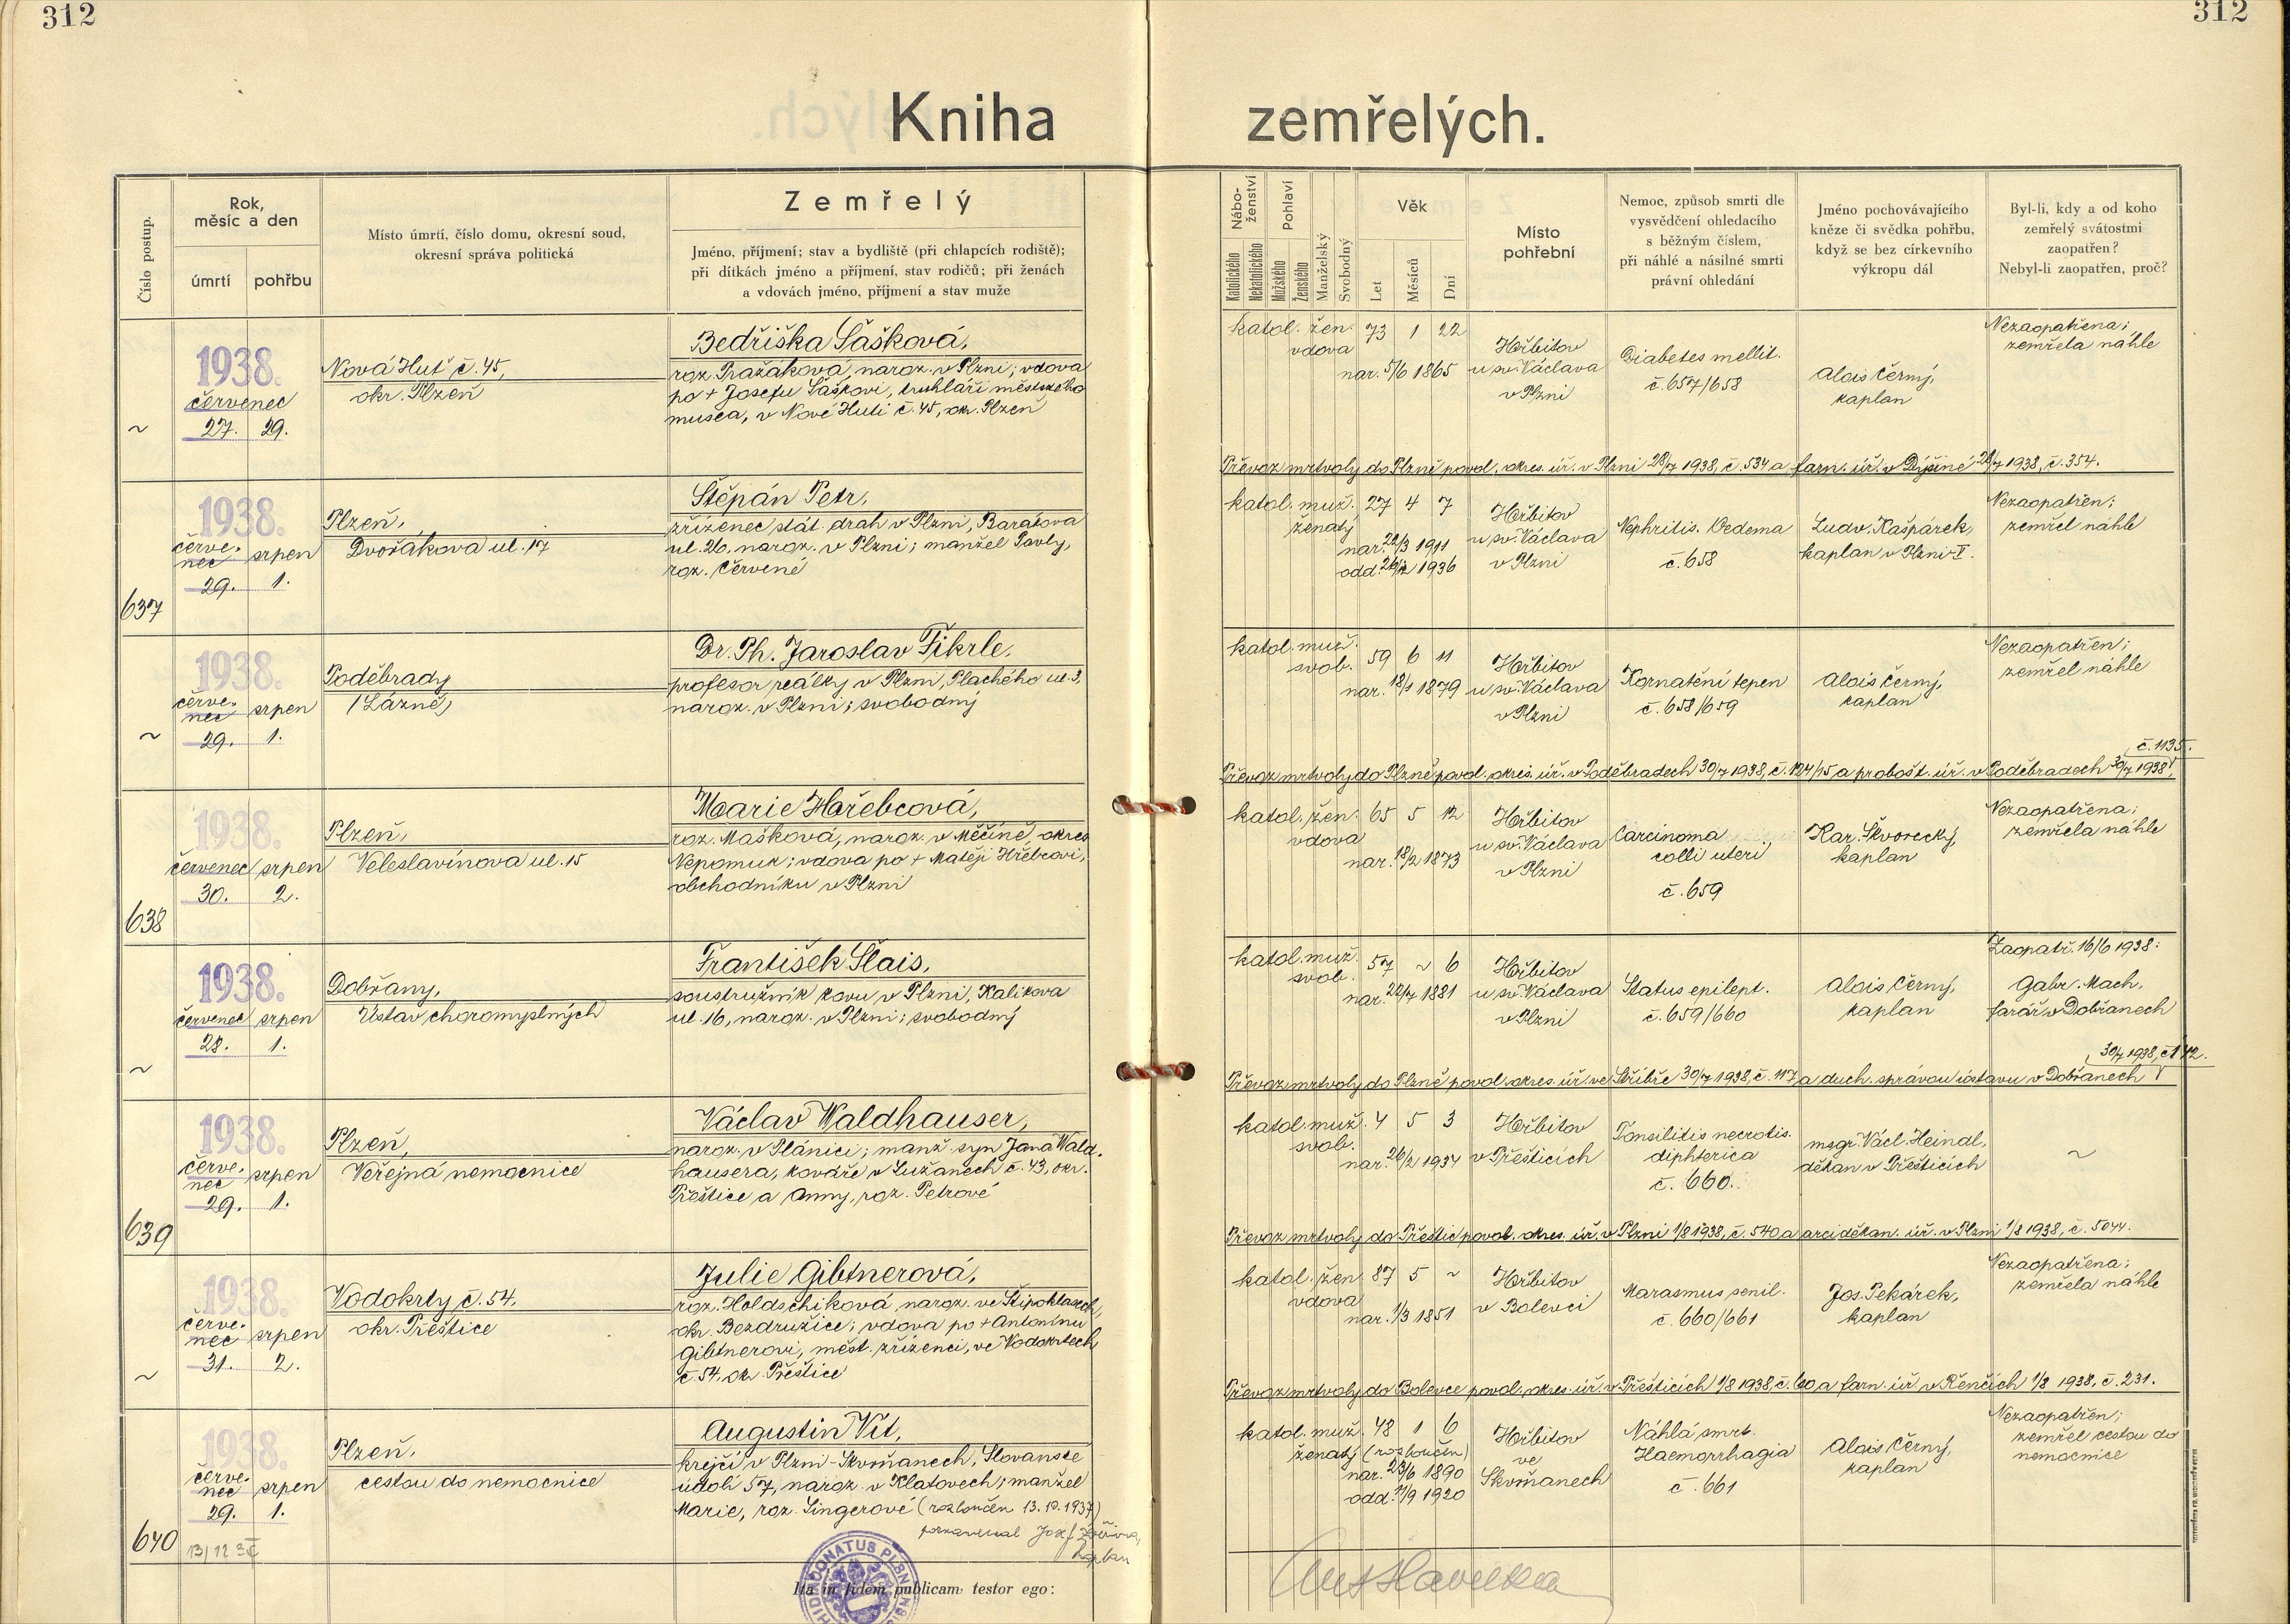 312
312
Kniha zemřelých.
Číslo postup.
Rok, měsíc a den
úmrtí
pohřbu
Místo úmrtí, číslo domu, okresní soud,
okresní správa politická
Zemřelý
Jméno, příjmení; stav a bydliště (při chlapcích rodiště);
při dítkách jméno a příjmení, stav rodičů; při ženách
a vdovách jméno, příjmení a stav muže
Nábo-
ženství
Katolického
Nekatolického
Pohlaví
Mužského
Ženského
Manželský
Svobodný
Věk
Let
Měsíců
Dní
Místo
pohřební
Nemoc, způsob smrti dle
vysvědčení ohledacího
s běžným číslem,
při náhlé a násilné smrti
právní ohledání
Jméno pochovávajícího
kněze či svědka pohřbu,
když se bez církevního
výkropu dál
Byl-li, kdy a od koho
zemřelý svátostmi
zaopatřen?
Nebyl-li zaopatřen, proč?
~
1938.
červenec
27. 29.
Nová Huť č. 45,
okr. Plzeň
Bedřiška Šašková,
roz. Pražáková, naroz. v Plzni; vdova
po + Josefu Šaškovi, truhláři městského
musea, v Nové Huti č. 45, okr. Plzeň
katol. žen. 73 1 22
vdova
nar. 5/6 1865
Hřbitov
u sv. Václava
v Plzni
Diabetes mellit.
č. 657/658
Alois Černý,
kaplan
Nezaopatřena;
zemřela náhle
Převoz mrtvoly do Plzně povol. okres. úř. v Plzni 28/7 1938, č. 534 a farn. úř. v Dýšině 28/7 1938, č. 354.
637
1938.
červe-
nec srpen
29. 1.
Plzeň,
Dvořákova ul. 17
Štěpán Petr,
zřízenec stát. drah v Plzni, Barákova
ul. 26, naroz. v Plzni; manžel Pavly,
roz. Červené
katol. muž. 27 4 7
ženatý
nar. 22/3 1911
odd. 1936
Hřbitov
u sv. Václava
v Plzni
Nephritis. Oedema
č. 658
Ludv. Kašpárek,
kaplan v Plzni-V.
Nezaopatřen;
zemřel náhle
~
1938.
červe-
nec srpen
29. 1.
Poděbrady
(Lázně)
Dr. Ph. Jaroslav Fikrle,
profesor reálky v Plzni, Plachého ul. 3,
naroz. v Plzni; svobodný
katol. muž.
svob. 59 6 11
nar. 18/1 1879
Hřbitov
u sv. Václava
v Plzni
Kornatění tepen
č. 658/659
Alois Černý,
kaplan
Nezaopatřen;
zemřel náhle
č. 1135.
Převoz mrtvoly do Plzně povol. okres. úř. v Poděbradech 30/7 1938, č. 124/15 a probošt. úř. v Poděbradech 30/7 1938,
638
1938.
červenec srpen
30. 2.
Plzeň,
Veleslavínova ul. 15
Marie Hařebcová,
roz. Mašková, naroz. v Měčíně, okres
Nepomuk; vdova po + Matěji Hřebcovi,
obchodníku v Plzni
katol. žen. 65 5 12
vdova
nar. 18/2 1873
Hřbitov
u sv. Václava
v Plzni
Carcinoma
colli uteri
č. 659
Kar. Škvorecký,
kaplan
Nezaopatřena;
zemřela náhle
~
1938.
červenec srpen
28. 1.
Dobřany,
Ústav choromyslných
František Šlais,
soustružník kovu v Plzni, Kalikova
ul. 16, naroz. v Plzni; svobodný
katol. muž. 57 ~ 6
svob.
nar. 22/7 1881
Hřbitov
u sv. Václava
v Plzni
Status epilept.
č. 659/660
Alois Černý,
kaplan
Zaopatř. 16/6 1938:
Gabr. Mach,
farář v Dobřanech
30/7 1938, č. 112.
Převoz mrtvoly do Plzně povol. okres. úř. ve Stříbře 30/7 1938, č. 117 a duch. správou ústavu v Dobřanech
639
1938.
červe-
nec srpen
29. 1.
Plzeň,
Veřejná nemocnice
Václav Waldhauser,
naroz. v Plánici; manž. syn Jana Wald-
hausera, kováře v Lužanech č. 43, okr.
Přeštice a Anny, roz. Petrové
katol. muž. 4 5 3
svob.
nar. 26/2 1934
Hřbitov
v Přešticích
Tonsilitis necrotis.
diphterica
č. 660.
msgr. Václ. Heindl,
děkan v Přešticích
~
Převoz mrtvoly do Přeštic povol. okres. úř. v Plzni 1/8 1938, č. 540 a arciděkan. úř. v Plzni 1/8 1938, č. 5044.
~
1938.
červe-
nec srpen
31. 2.
Vodokrty č. 54,
okr. Přeštice
Julie Gibtnerová,
roz. Holdschiková, naroz. ve Štipoklasech,
okr. Bezdružice; vdova po + Antonínu
Gibtnerovi, měst. zřízenci, ve Vodokrtech
č. 54, okr. Přeštice
katol. žen. 87 5 ~
vdova
nar. 1/3 1851
Hřbitov
v Bolevci
Marasmus senil.
č. 660/661
Jos. Pekárek,
kaplan
Nezaopatřena;
zemřela náhle
Převoz mrtvoly do Bolevce povol. okres. úř. v Přešticích 1/8 1938, č. 60 a farn. úř. v Řenčích 1/8 1938, č. 231.
640
1938.
červe-
nec srpen
29. 1.
Plzeň,
cestou do nemocnice
Augustin Vít,
krejčí v Plzni-Skvrňanech, Slovanské
údolí 57, naroz. v Klatovech; manžel
Marie, roz. Singerové (rozloučen 13. 10. 1937)
kaplan
katol. muž. 48 1 6
ženatý (rozloučen)
nar. 23/6 1890
odd. 11/9 1920
Hřbitov
ve
Skvrňanech
Náhlá smrt.
Haemorrhagia
č. 661
Alois Černý,
kaplan
Nezaopatřen;
zemřel cestou do
nemocnice
Ita in fidem publicam testor ego: